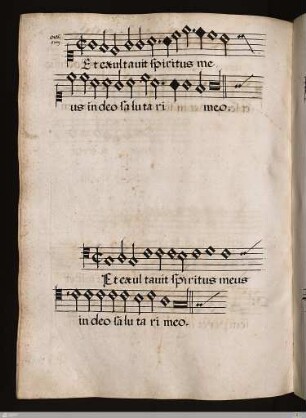 Et exultavit spiritus me
us in deo salutari meo.
Et exultavit spiritus meus
in deo salutari meo.